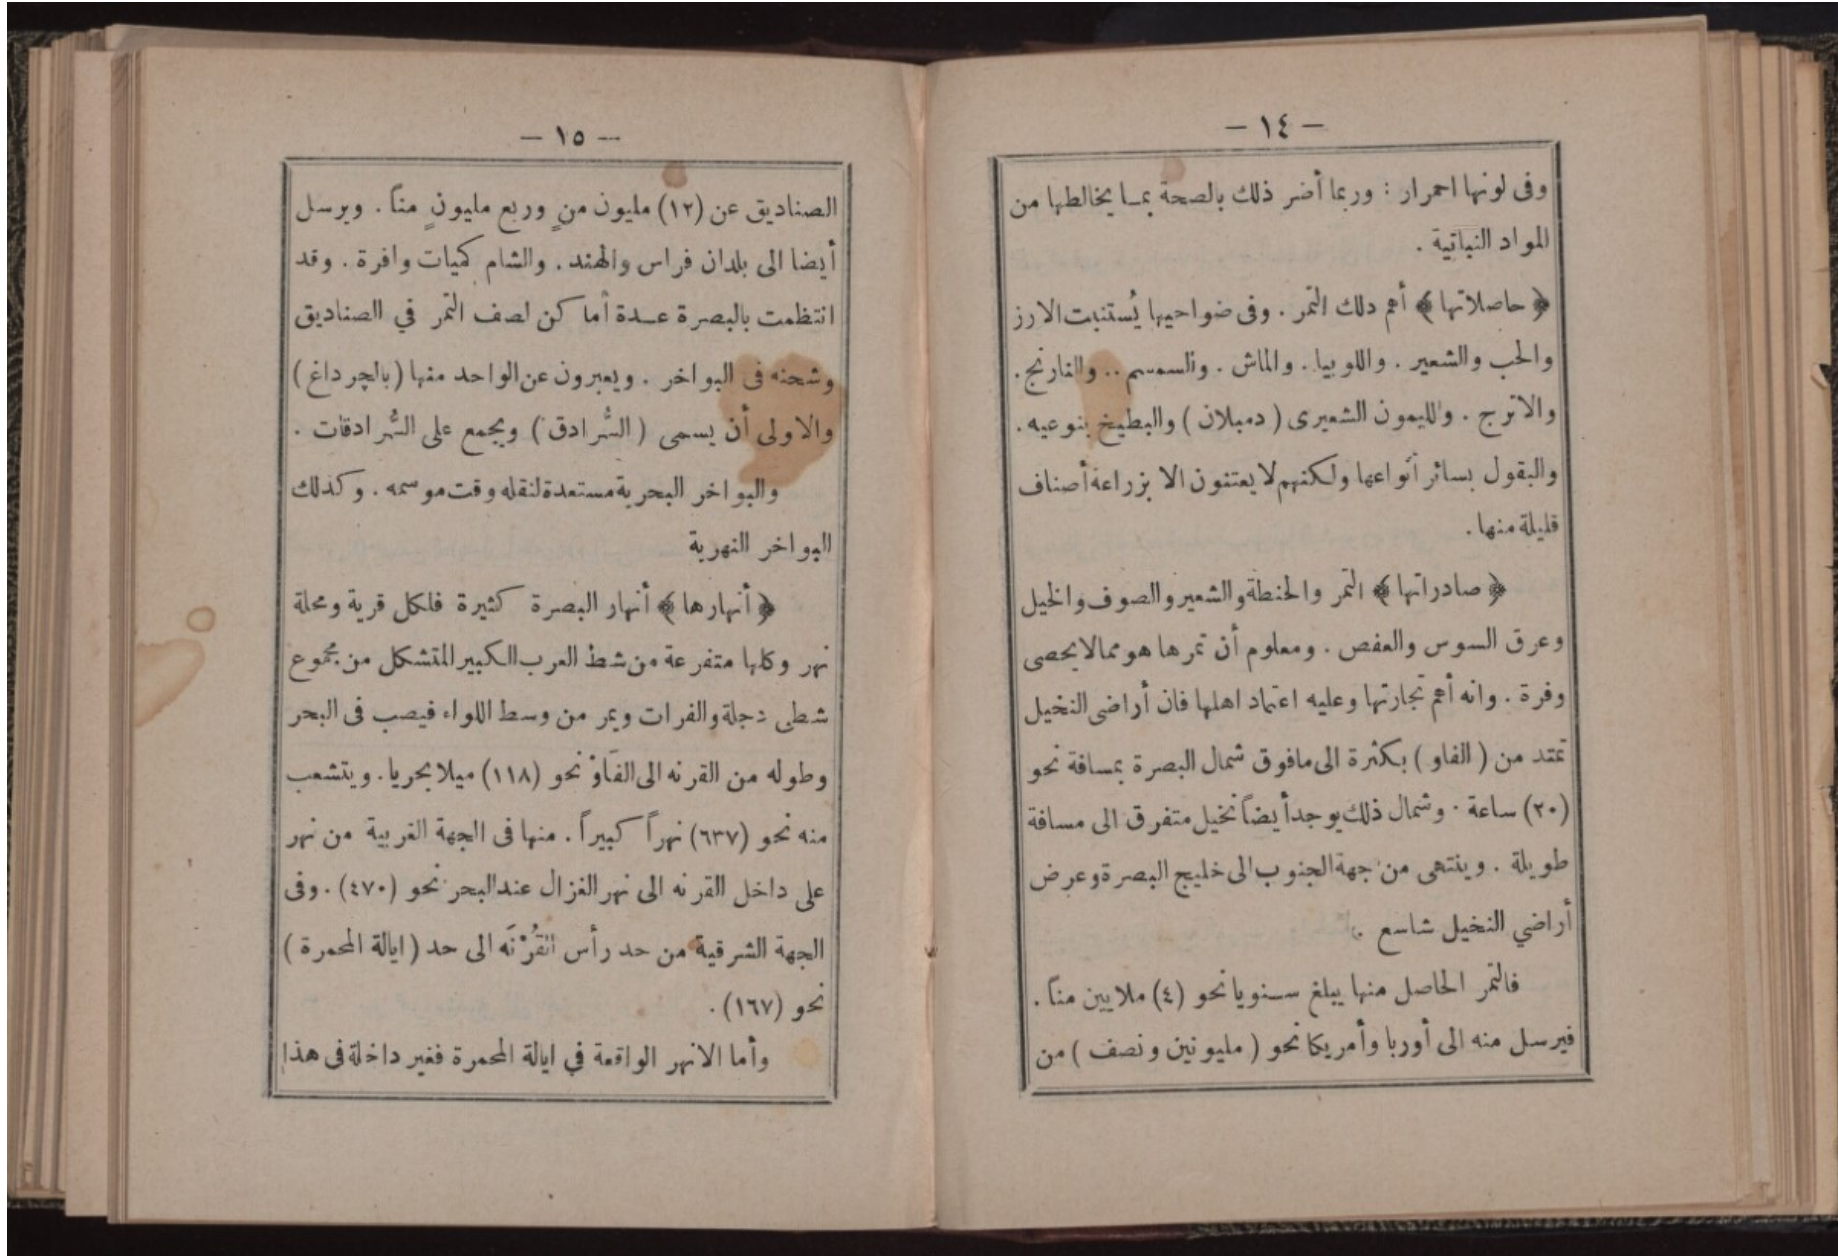 — ١٤ —
وفى لونها احمرار : وربما أضر ذلك بالصحة بما يخالطها من
المواد النباتية .
﴿ حاصلاتها ﴾ أهم دلك التمر . وفى ضواحيها يُستنبت الارز
والحب والشعير . واللوبيا . والماش . والسمسم .. والنارنج .
والاترج . والليمون الشعيرى ( دمبلان ) والبطيخ بنوعيه .
والبقول بسائر أنواعها ولكنهم لا يعتنون الا بزراعة أصناف
قليلة منها .
﴿ صادراتها ﴾ التمر والحنطة والشعير والصوف والخيل
وعرق السوس والعفص . ومعلوم أن تمرها هو ممالايحصى
وفرة . وانه أهم تجارتها وعليه اعتماد اهلها فان أراضى النخيل
تمتد من ( الفاو ) بكثرة الى مافوق شمال البصرة بمسافة نحو
(٢٠) ساعة . وشمال ذلك يوجد أيضاً نخيل متفرق الى مسافة
طويلة . وينتهى من جهة الجنوب الى خليج البصرة وعرض
أراضي النخيل شاسع .
فالتمر الحاصل منها يبلغ سنويا نحو (٤) ملايين مناً .
فيرسل منه الى أوربا وأمريكا نحو ( مليونين ونصف ) من
— ١٥ —
الصناديق عن (١٢) مليون منٍ وربع مليونٍ مناً . ويرسل
أيضا الى بلدان فراس والهند . والشام كميات وافرة . وقد
انتظمت بالبصرة عدة أما كن لصف التمر في الصناديق
وشحنه فى البواخر . ويعبرون عن الواحد منها (بالچرداغ)
والاولى أن يسمى ( السُّرادق ) ويجمع على السُّرادقات .
والبواخر البحرية مستعدة لنقله وقت موسمه . وكذلك
البواخر النهرية
﴿ أنهارها ﴾ أنهار البصرة كثيرة فلكل قرية ومحلة
نهر وكلها متفرعة من شط العرب الكبير المتشكل من مجموع
شطى دجلة والفرات ويمر من وسط اللواء فيصب فى البحر
وطوله من القرنه الى الفَاوْ نحو (١١٨) ميلا بحريا . ويتشعب
منه نحو (٦٣٧) نهراً كبيراً . منها فى الجهة الغربية من نهر
على داخل القرنه الى نهر الغزال عند البحر نحو (٤٧٠) . وفى
الجهة الشرقية من حد رأس القُرْنَه الى حد ( ايالة المحمرة )
نحو (١٦٧) .
وأما الانهر الواقعة في ايالة المحمرة فغير داخلة فى هذا